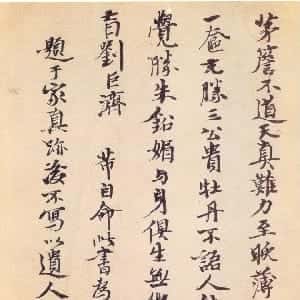 茅簷不道天真難力至薄
一勝三公貴牡丹不語人
覺勝朱鉛媚與身俱生無
右劉巨濟 芾自命此書為
題于家真跡後不寫以遺人